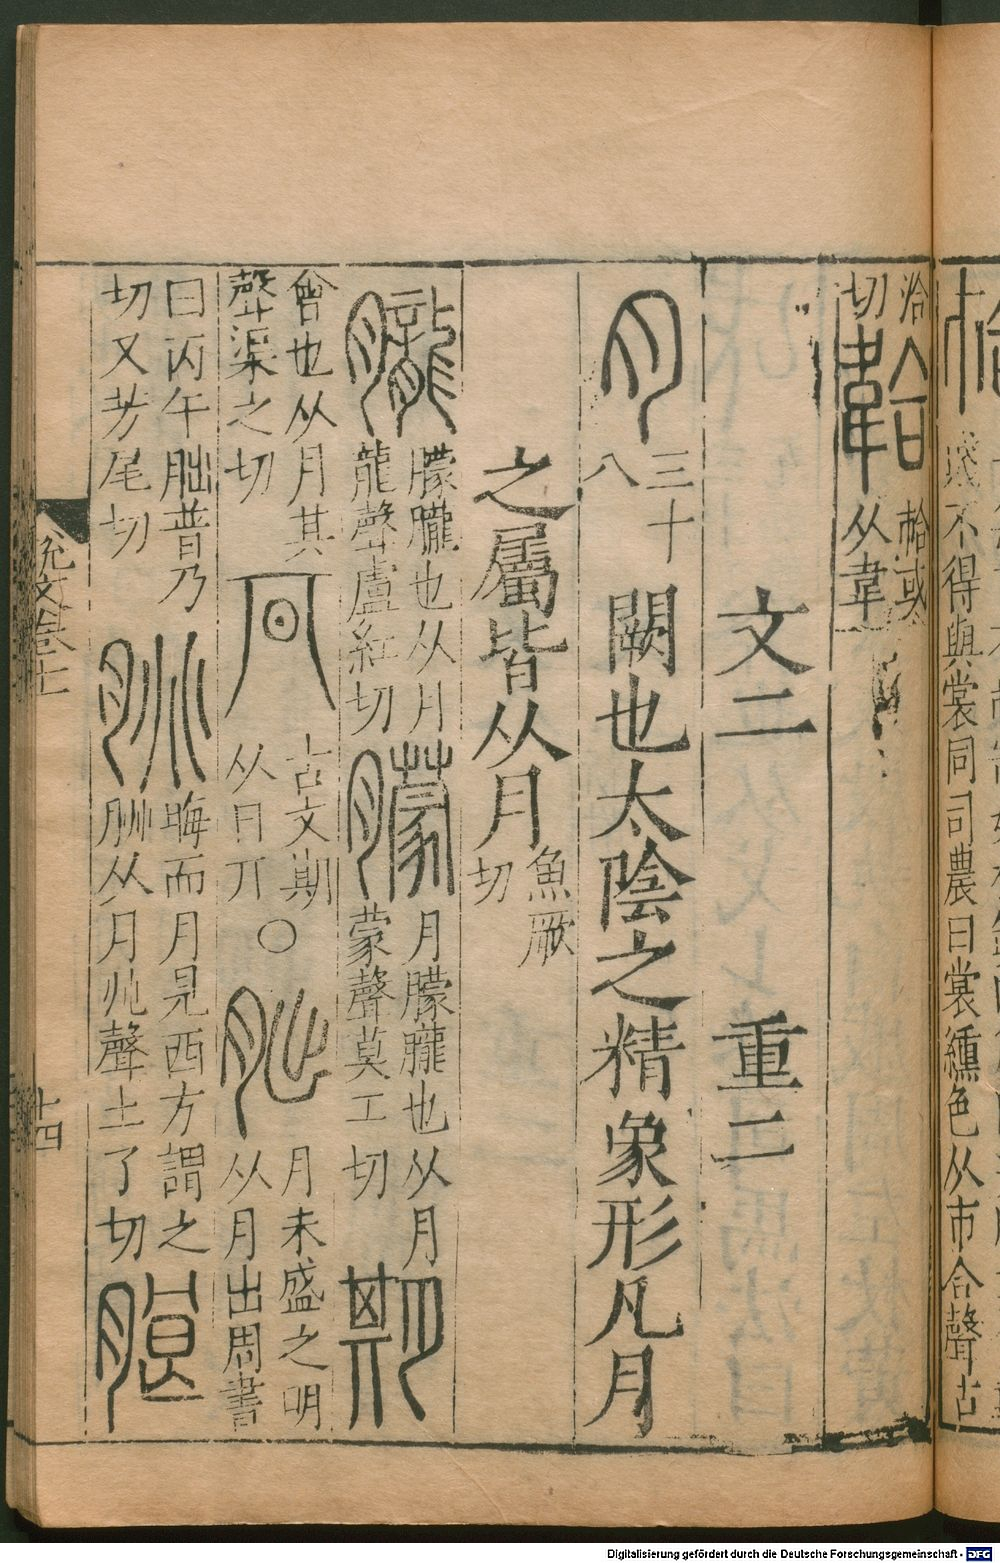 賤不得與裳同司農曰裳纁色从市合聲古
洽切韐帢或从韋
文二 重二
月 三十八 闕也太陰之精象形凡月
之屬皆从月 魚厥切
朧 朦朧也从月龍聲盧紅切 朦 月朦朧也从月蒙聲莫工切 期
會也从月其聲渠之切 𠔋 古文期从日丌 ○ 朏 月未盛之明从月出周書
曰丙午朏普乃切又芳尾切 朓 晦而月見西方謂之朓从月兆聲土了切 朖
說文卷七
十四
Digitalisierung gefördert durch die Deutsche Forschungsgemeinschaft - DFG